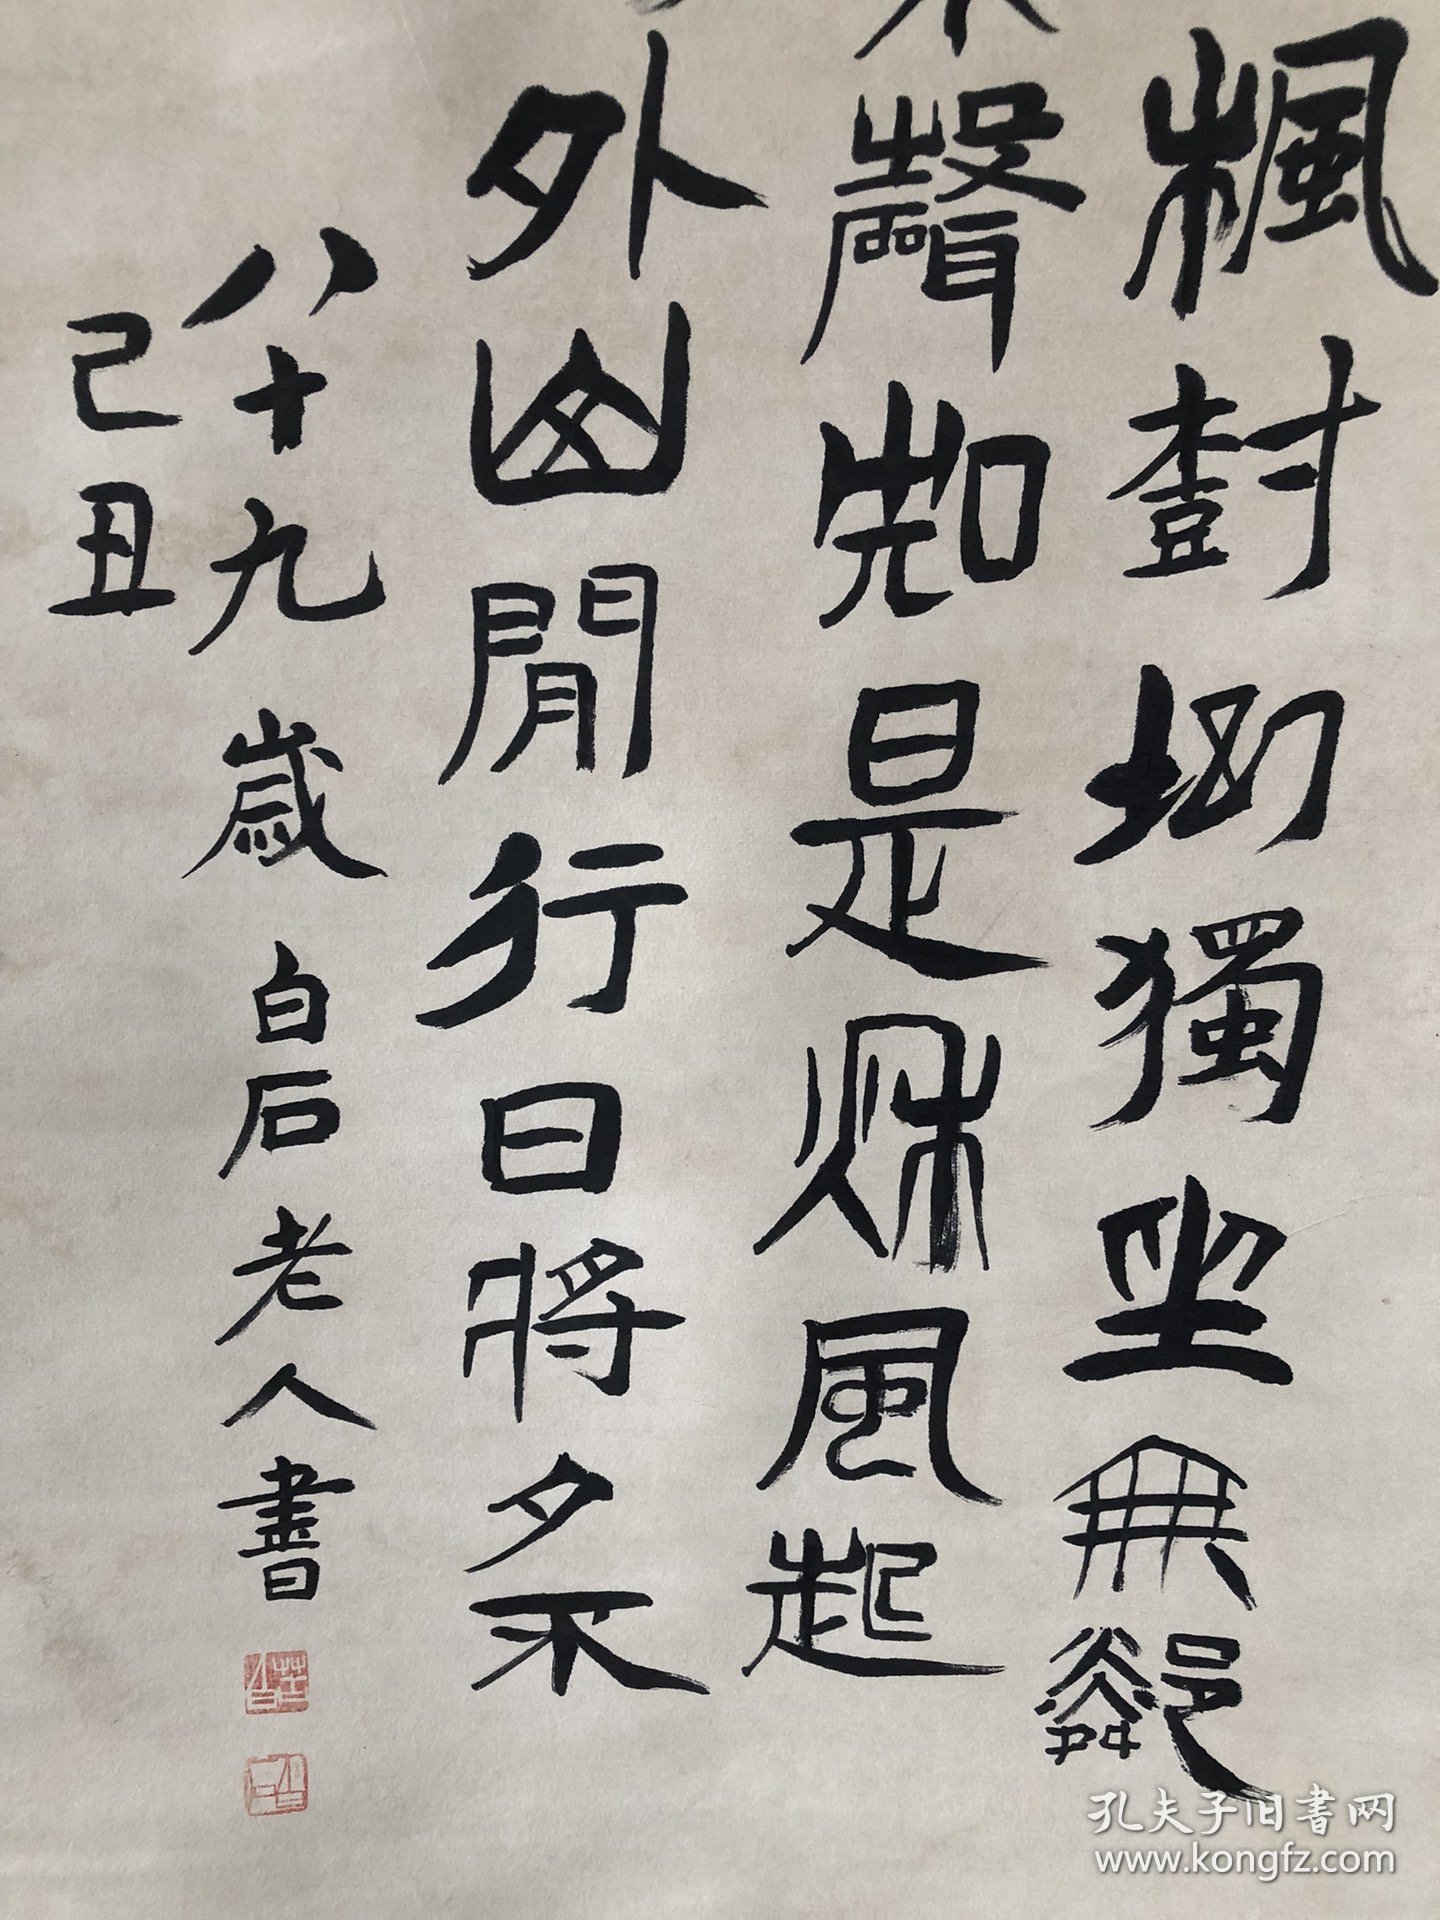 楓樹坳獨坐無鄰
聲知是秋風起
外囪閒行日將夕不
八十九歲白石老人書
己丑
孔夫子旧書网
www.kongfz.com